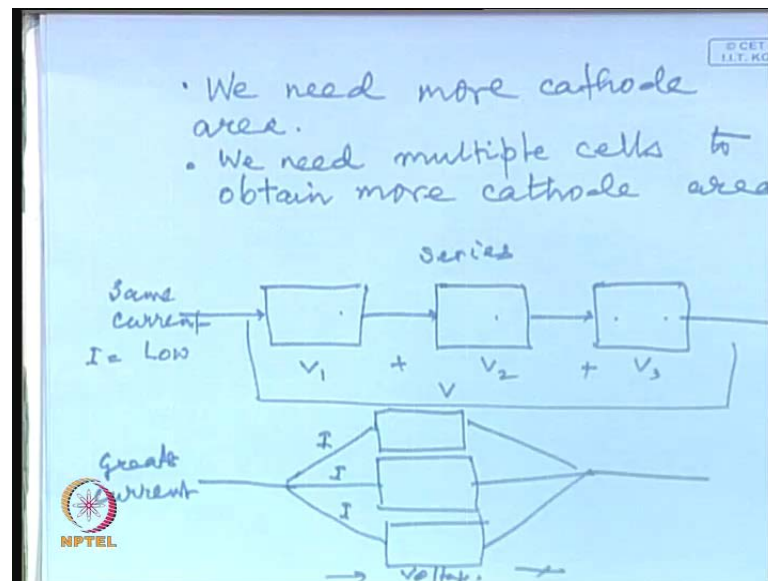 © CET
I.I.T. KG
• We need more cathode
area.
• We need multiple cells to
obtain more cathode area
series
Same
current
I = Low
V1 + V2 + V3
V
I
Greate
current
I
I
NPTEL
→ Voltage